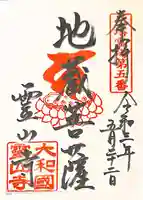 奉拝
第五番
令和六年
五月二十二日
地蔵菩薩
霊山寺
大和國
霊山寺